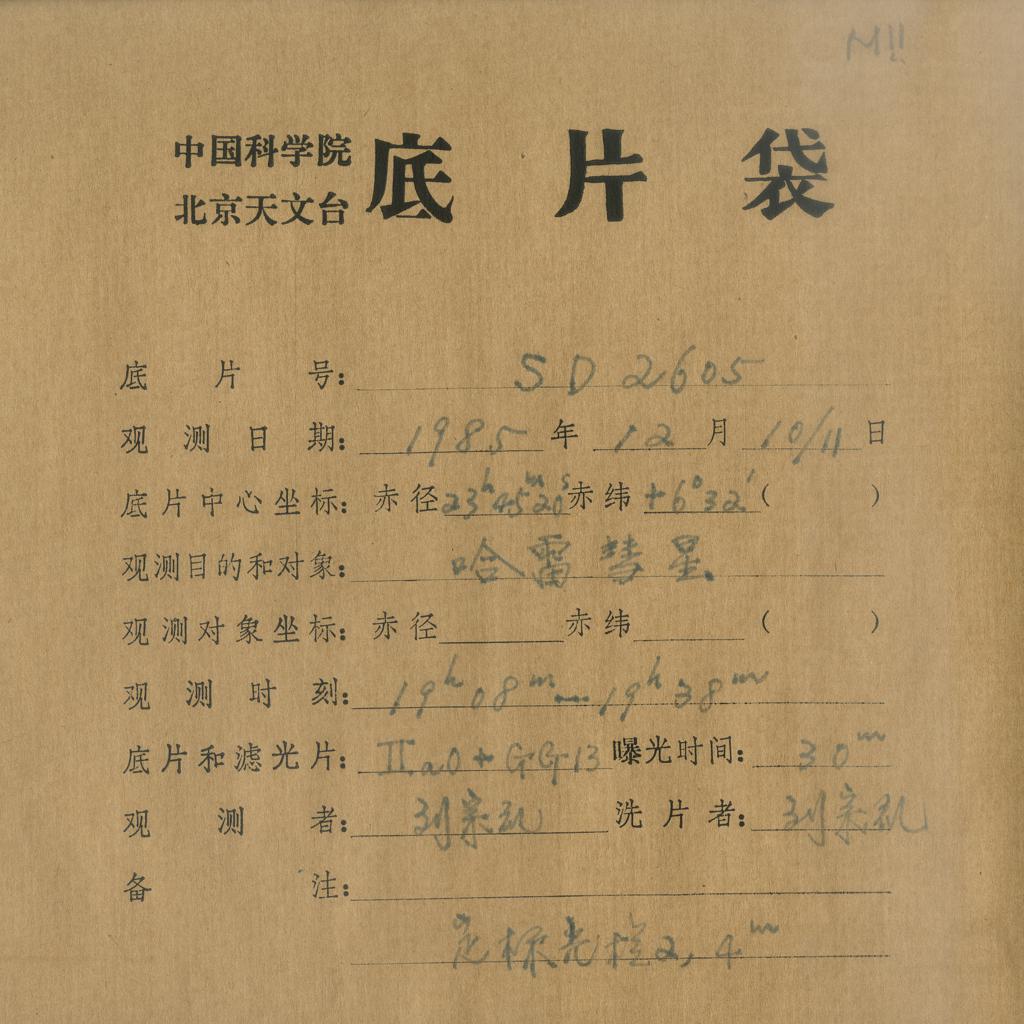 M11
中国科学院
北京天文台 底片袋
底片号: SD 2605
观测日期: 1985年 12月 10/11日
底片中心坐标: 赤径 23ʰ45ᵐ20ˢ 赤纬 +6°32′ ( )
观测目的和对象: 哈雷彗星
观测对象坐标: 赤径 赤纬 ( )
观测时刻: 19ʰ08ᵐ—19ʰ38ᵐ
底片和滤光片: IIaO + GG13 曝光时间: 30ᵐ
观测者: 刘宗 洗片者: 刘宗
备注:
定标光楔2, 4ᵐ